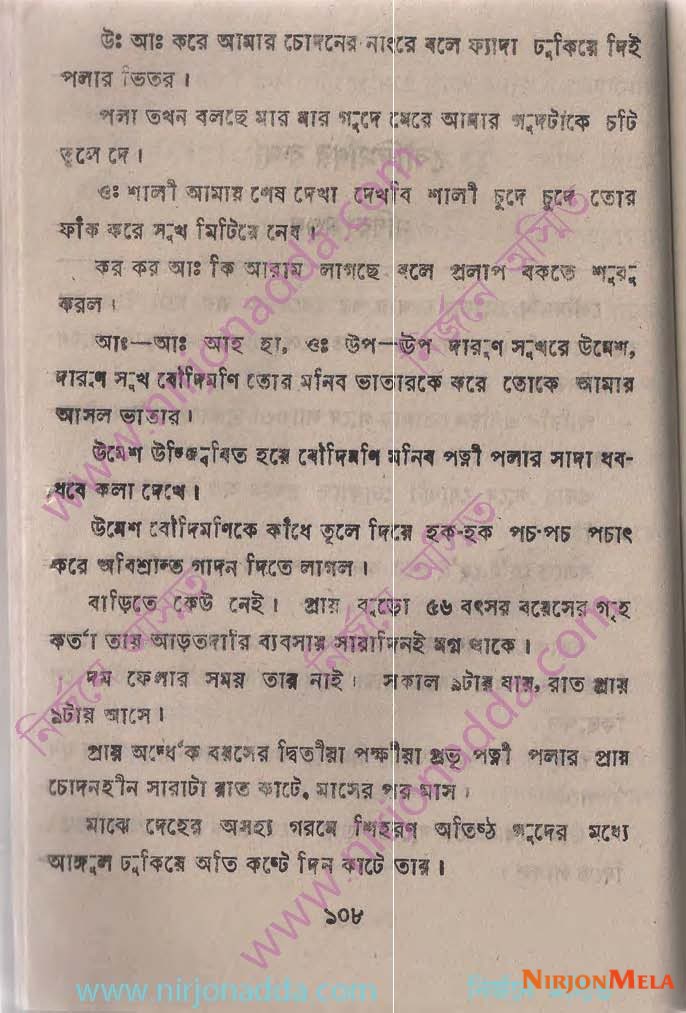 উঃ আঃ করে আমার চোদনের নাংরে বলে ফ্যাদা ঢুকিয়ে দিই
পলার ভিতর ।
পলা তখন বলছে মার মার গুদে মেরে আমার গুদটাকে চটি
তুলে দে ।
ওঃ শালী আমায় শেষ দেখা দেখবি শালী চুদে চুদে তোর
ফাঁক করে সুখ মিটিয়ে নেব ।
কর কর আঃ কি আরাম লাগছে বলে প্রলাপ বকতে শুরু
করল ।
আঃ—আঃ আহ হা, ওঃ উপ—উপ দারুণ সুখরে উমেশ,
দারুণ সুখ বৌদিমণি তোর মনিব ভাতারকে করে তোকে আমার
আসল ভাতার ।
উমেশ হয়ে বৌদিমণি মনিব পত্নী পলার সাদা ধব-
ধবে কলা দেখে ।
উমেশ বৌদিমণিকে কাঁধে তুলে দিয়ে হক-হক পচ-পচ পচাৎ
করে অবিশ্রান্ত গাদন দিতে লাগল ।
বাড়িতে কেউ নেই । প্রায় বুড়ো ৫৬ বৎসর বয়েসের গৃহ
কর্তা তায় আড়তদারি ব্যবসায় সারাদিনই মগ্ন থাকে ।
দম ফেলার সময় তার নাই । সকাল ৯টায় যায়, রাত প্রায়
৯টায় আসে ।
প্রায় অর্ধেক বয়সের দ্বিতীয়া পক্ষীয়া প্রভু পত্নী পলার প্রায়
চোদনহীন সারাটা রাত কাটে, মাসের পর মাস ।
মাঝে দেহের অসহ্য গরমে শিহরণ অতিষ্ঠ গুদের মধ্যে
আঙ্গুল ঢুকিয়ে অতি কষ্টে দিন কাটে তার ।
১০৮
www.nirjonadda.com
নির্জনে অস্মিত
www.nirjonadda.com
নির্জনে অস্মিত
নির্জনে অস্মিত
www.nirjonadda.com
www.nirjonadda.com
NIRJONMELA